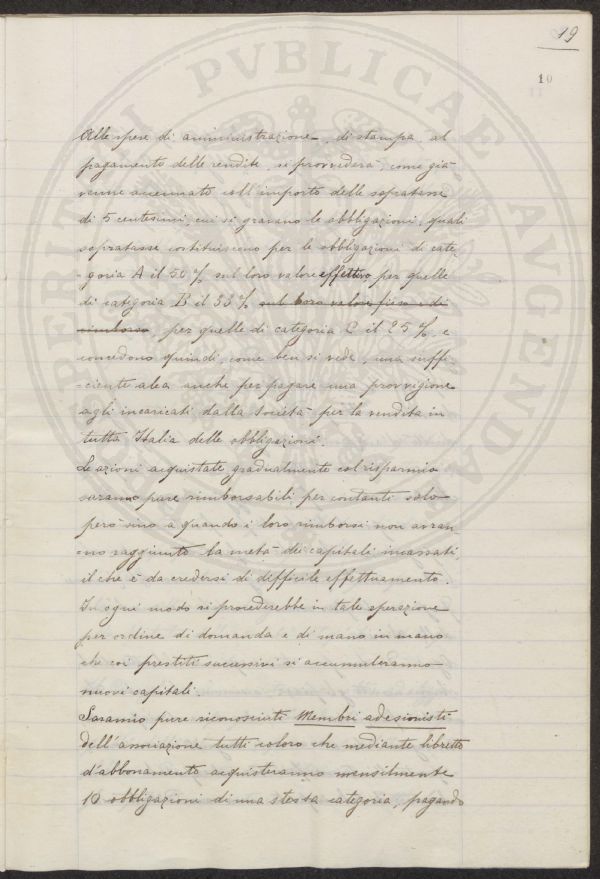 19
10
Alle spese di amministrazione, di stampa, al
pagamento delle rendite, si provvederà, come già
venne accennato coll'importo delle sopratasse
di 5 centesimi, cui si gravano le obbligazioni, quali
sopratasse costituiscono per le obbligazioni di cate-
-goria A il 50% sul loro valore effettivo per quelle
di categoria B il 33% sul loro valore fisso di
rimborso per quelle di categoria C il 25%, e
concedono quindi, come ben si vede, una suffi-
-ciente alea anche per pagare una provvigione
agli incaricati dalla Società per la vendita in
tutta Italia delle obbligazioni.
Le azioni acquistate gradualmente col risparmio
saranno pure rimborsabili per contanti solo
però sino a quando i loro rimborsi non avran
-no raggiunto la metà dei capitali incassati,
il che è da credersi di difficile effettuamento.
In ogni modo si procederebbe in tale operazione
per ordine di domanda e di mano in mano
che coi prestiti successivi si accumuleranno
nuovi capitali.
Saranno pure riconosciuti Membri adesionisti
dell'associazione tutti coloro che mediante libretto
d'abbonamento acquisteranno mensilmente
10 obbligazioni di una stessa categoria, pagando